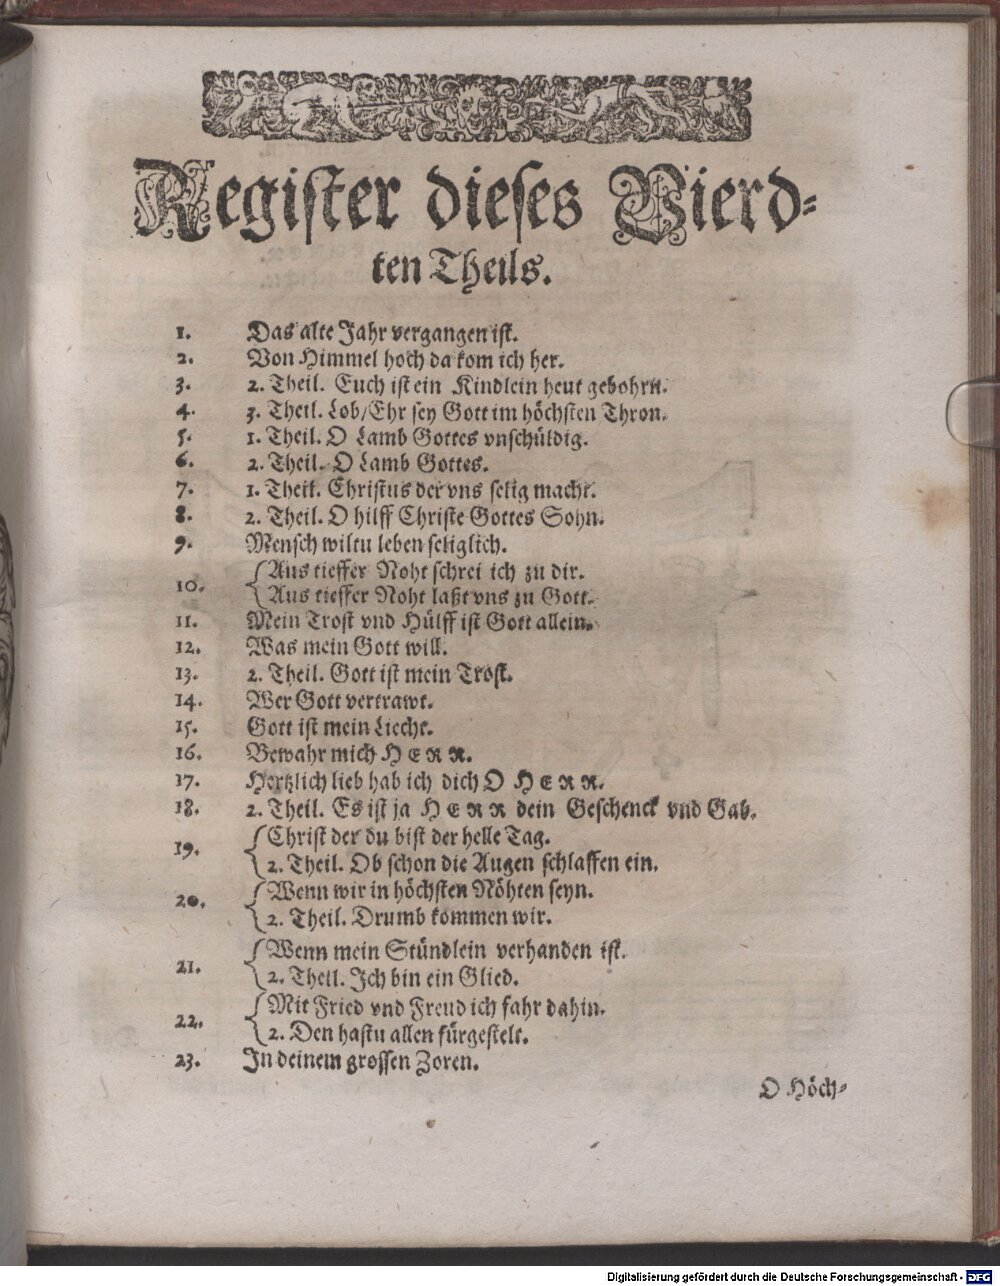 Regiſter dieſes Vierd⸗
ten Theils.
1. Das alte Jahr vergangen iſt.
2. Von Himmel hoch da kom ich her.
3. 2. Theil. Euch iſt ein Kindlein heut gebohrn.
4. 3. Theil. Lob/Ehr ſey Gott im höchſten Thron.
5. 1. Theil. O Lamb Gottes vnſchüldig.
6. 2. Theil. O Lamb Gottes.
7. 1. Theil. Chriſtus der vns ſelig macht.
8. 2. Theil. O hilff Chriſte Gottes Sohn.
9. Menſch wiltu leben ſeliglich.
10. Aus tieffer Noht ſchrei ich zu dir.
Aus tieffer Noht laßt vns zu Gott.
11. Mein Troſt vnd Hülff iſt Gott allein.
12. Was mein Gott will.
13. 2. Theil. Gott iſt mein Troſt.
14. Wer Gott vertrawt.
15. Gott iſt mein Liecht.
16. Bewahr mich HERR.
17. Hertzlich lieb hab ich dich O HERR.
18. 2. Theil. Es iſt ja HERR dein Geſchenck vnd Gab.
19. Chriſt der du biſt der helle Tag.
2. Theil. Ob ſchon die Augen ſchlaffen ein.
20. Wenn wir in höchſten Nöhten ſeyn.
2. Theil. Drumb kommen wir.
21. Wenn mein Stündlein verhanden iſt.
2. Theil. Ich bin ein Glied.
22. Mit Fried vnd Freud ich fahr dahin.
2. Den haſtu allen fürgeſtelt.
23. In deinem groſſen Zoren.
O Höch⸗
Digitalisierung gefördert durch die Deutsche Forschungsgemeinschaft - DFG